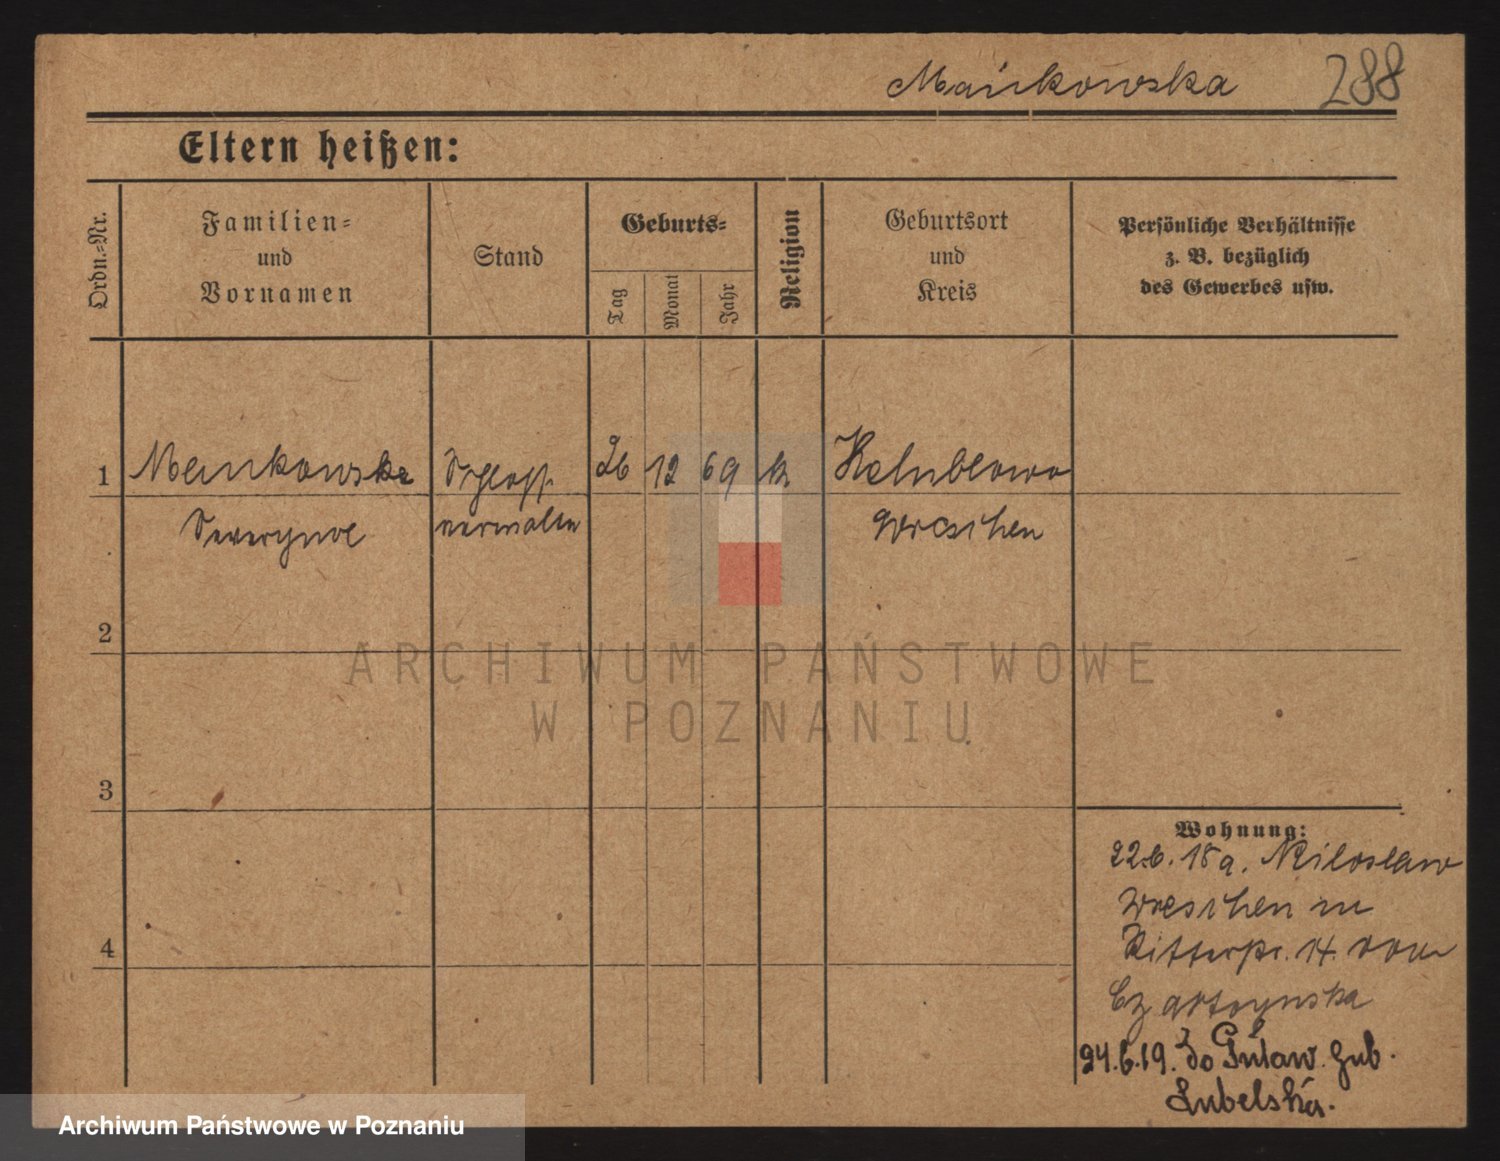 Mańkowska 288
Eltern heißen:
Ordn.-Nr.
Familien-
und
Vornamen
Stand
Geburts-
Tag
Monat
Jahr
Religion
Geburtsort
und
Kreis
Persönliche Verhältnisse
z. B. bezüglich
des Gewerbes usw.
1 Mankowska Schloss 26 12 69 k
Severyna verwalterin Wreschen
2
3
4
Wohnung:
22.6.18 a. Miloslaw
Wreschen in
Ritterstr. 14 von
Czartoynska
24.6.19. do Puław. Gub.
Lubelska.
ARCHIWUM PAŃSTWOWE
W POZNANIU
Archiwum Państwowe w Poznaniu